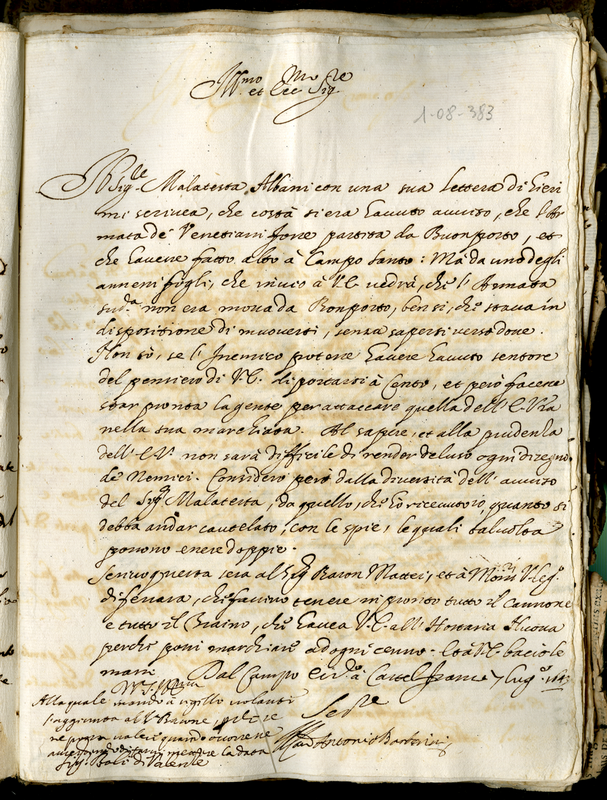 Ill.mo
et Ecc Sig.re
1-08-383
Il Sig.re Malatesta Albani con una sua lettera di hieri
mi scriveva, che costà si era havuto avviso, che l'Ar
mata de' Venetiani fosse partita da Buonporto, et
che havesse fatto alto à Campo Santo: Mà da uno degli
annessi fogli, che invio à V.E. vedrà, che l'Armata
sud.a non era mossa da Bonporto, bensi, che stava in
dispositione di muoversi, senza sapersi verso dove.
Non sò, se l'Inemico potesse havere havuto sentore
del pensiero di V.E. di portarsi à Cento, et però facesse
star pronta la gente per attaccare quella dell'E.V.ra
nella sua marchiata. Al sapere, et alla prudenza
dell'E.V. non sarà difficile di render deluso ogni disegno
de Nemici. Considero però dalla diversità dell'avviso
del Sig.re Malatesta, da quello, che hò ricevuto io, quanto si
debba andar cautelato, con le spie, le quali talvolta
possono essere doppie.
Scrivo questa sera al Sig.r Baron Mattei, et à Mons.r V.Leg.o
di Ferrara, che faccino tenere in pronto tutto il Cannone
e tutto il Traino, che havea V.E. all'Hostaria Nuova
perche possi marchiare ad ogni cenno. Et à V.E. bacio le
mani. Dal Campo Ecc.o à Castel franco 7 Lug.o 1643
Alla quale mando à sigillo volanti
l'aggiunta al
Ser.re
Antonio Barberini